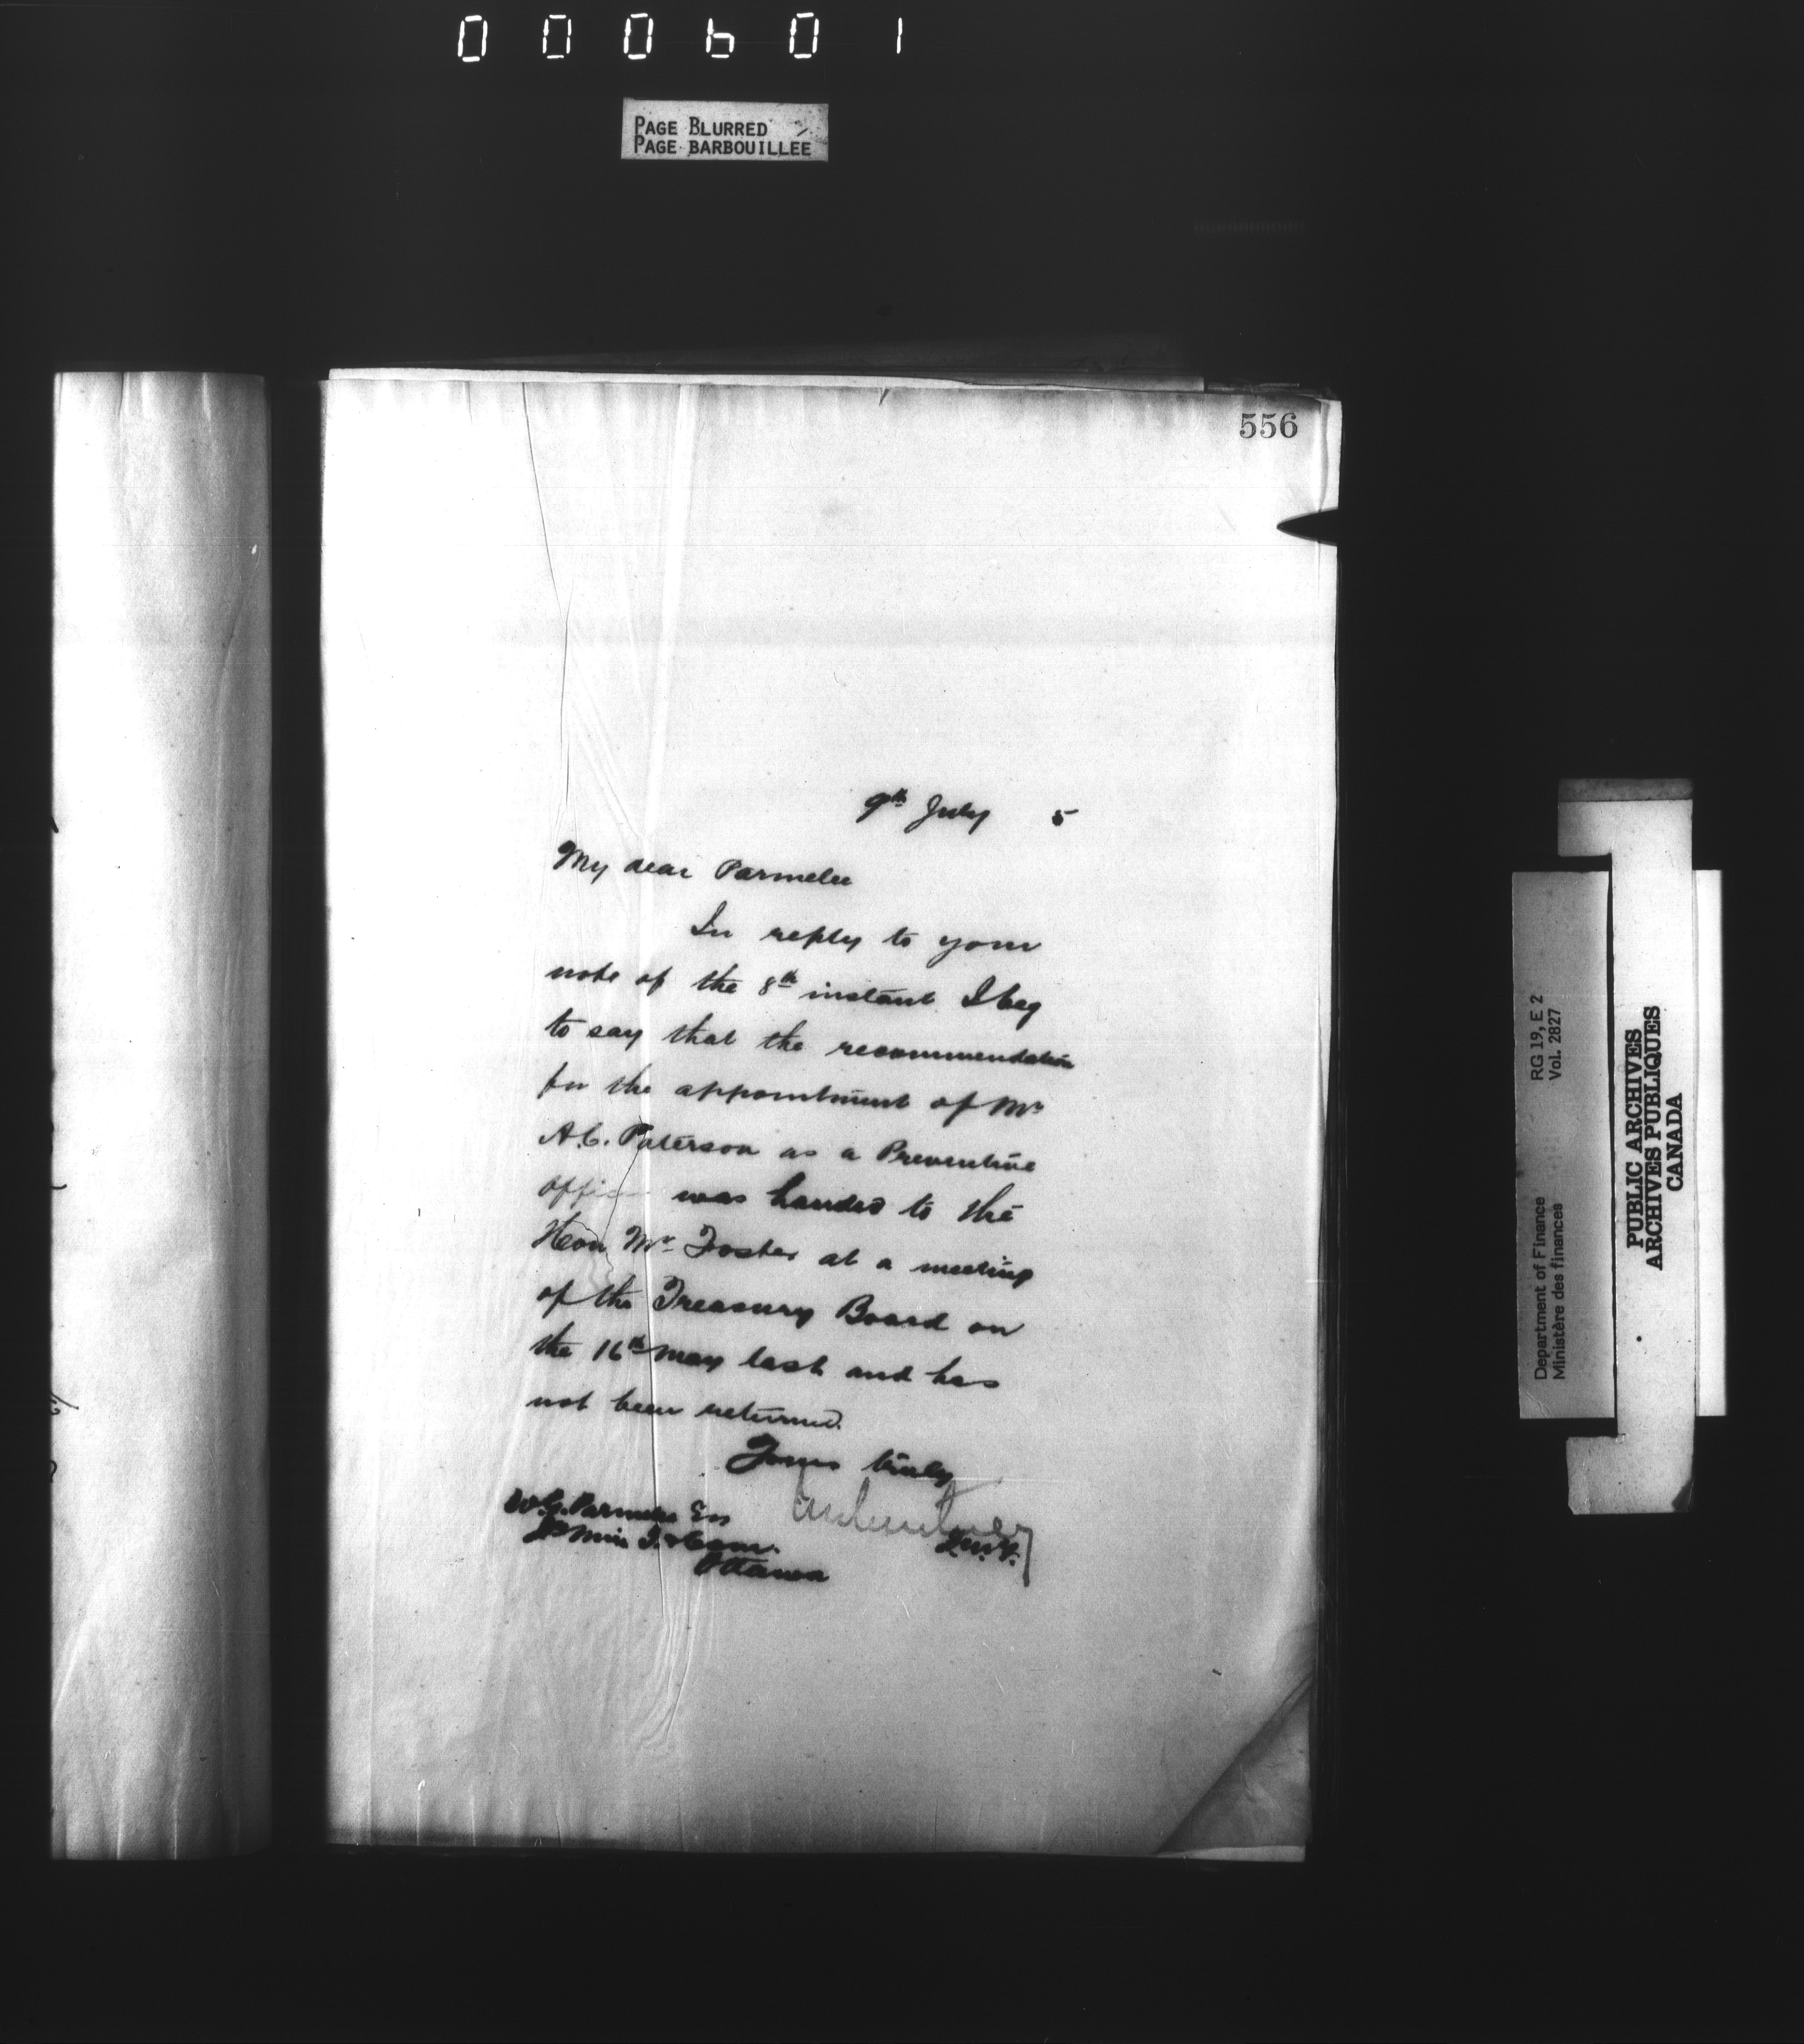 000601
PAGE BLURRED
PAGE BARBOUILLEE
556
9th July 5
My dear Parmelee
In reply to your
note of the 8th instant I beg
to say that the recommendation
for the appointment of Mr
A.C. Paterson as a Preventive
officer was handed to the
Hon Mr. Foster at a meeting
of the Treasury Board on
the 16th May last and has
not been returned.
Yours truly
W.G. Parmelee Esq
Dp Min T. & Com.
Ottawa
Department of Finance RG 19, E 2
Ministère des finances Vol. 2827
PUBLIC ARCHIVES
ARCHIVES PUBLIQUES
CANADA